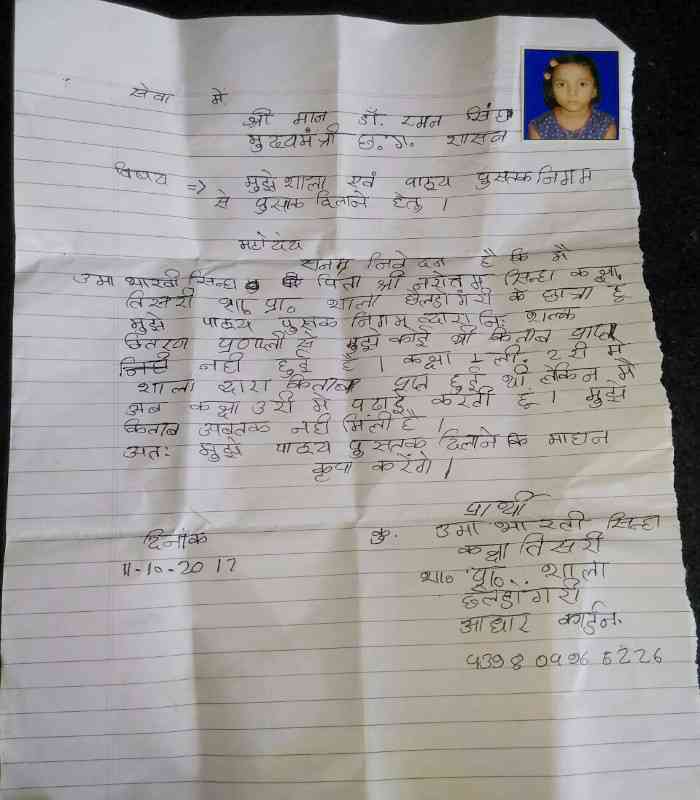 सेवा में
श्री मान डॉ. रमन सिंह
मुख्यमंत्री छ. ग. शासन
विषय => मुझे शाला एवं पाठ्य पुस्तक निगम
से पुस्तक दिलाने हेतु ।
महोदय
सनम्र निवेदन है कि मै
उमा भारती सिन्हा पिता श्री नरोतम सिन्हा कक्षा
तिसरी शा. प्रा. शाला छैलडोंगरी के छात्रा हूं
मुझे पाठ्य पुस्तक निगम द्वारा नि: शुल्क
वितरण प्रणाली से मुझे कोई भी किताब प्राप्त
नही हुई है । कक्षा 1 ली. 2 री में
शाला द्वारा किताब प्राप्त हुई थी लेकिन मै
अब कक्षा 3री मे पढाई करती हूं । मुझे
किताब अबतक नही मिली है ।
अत: मुझे पाठ्य पुस्तक दिलाने कि
कृपा करेंगे ।
प्रार्थी
दिनांक कु. उमा भारती सिन्हा
11-10-2017 कक्षा तिसरी
शा० प्रा. शाला
छैलडोंगरी
आधार कार्ड न.
9398 0996 5226